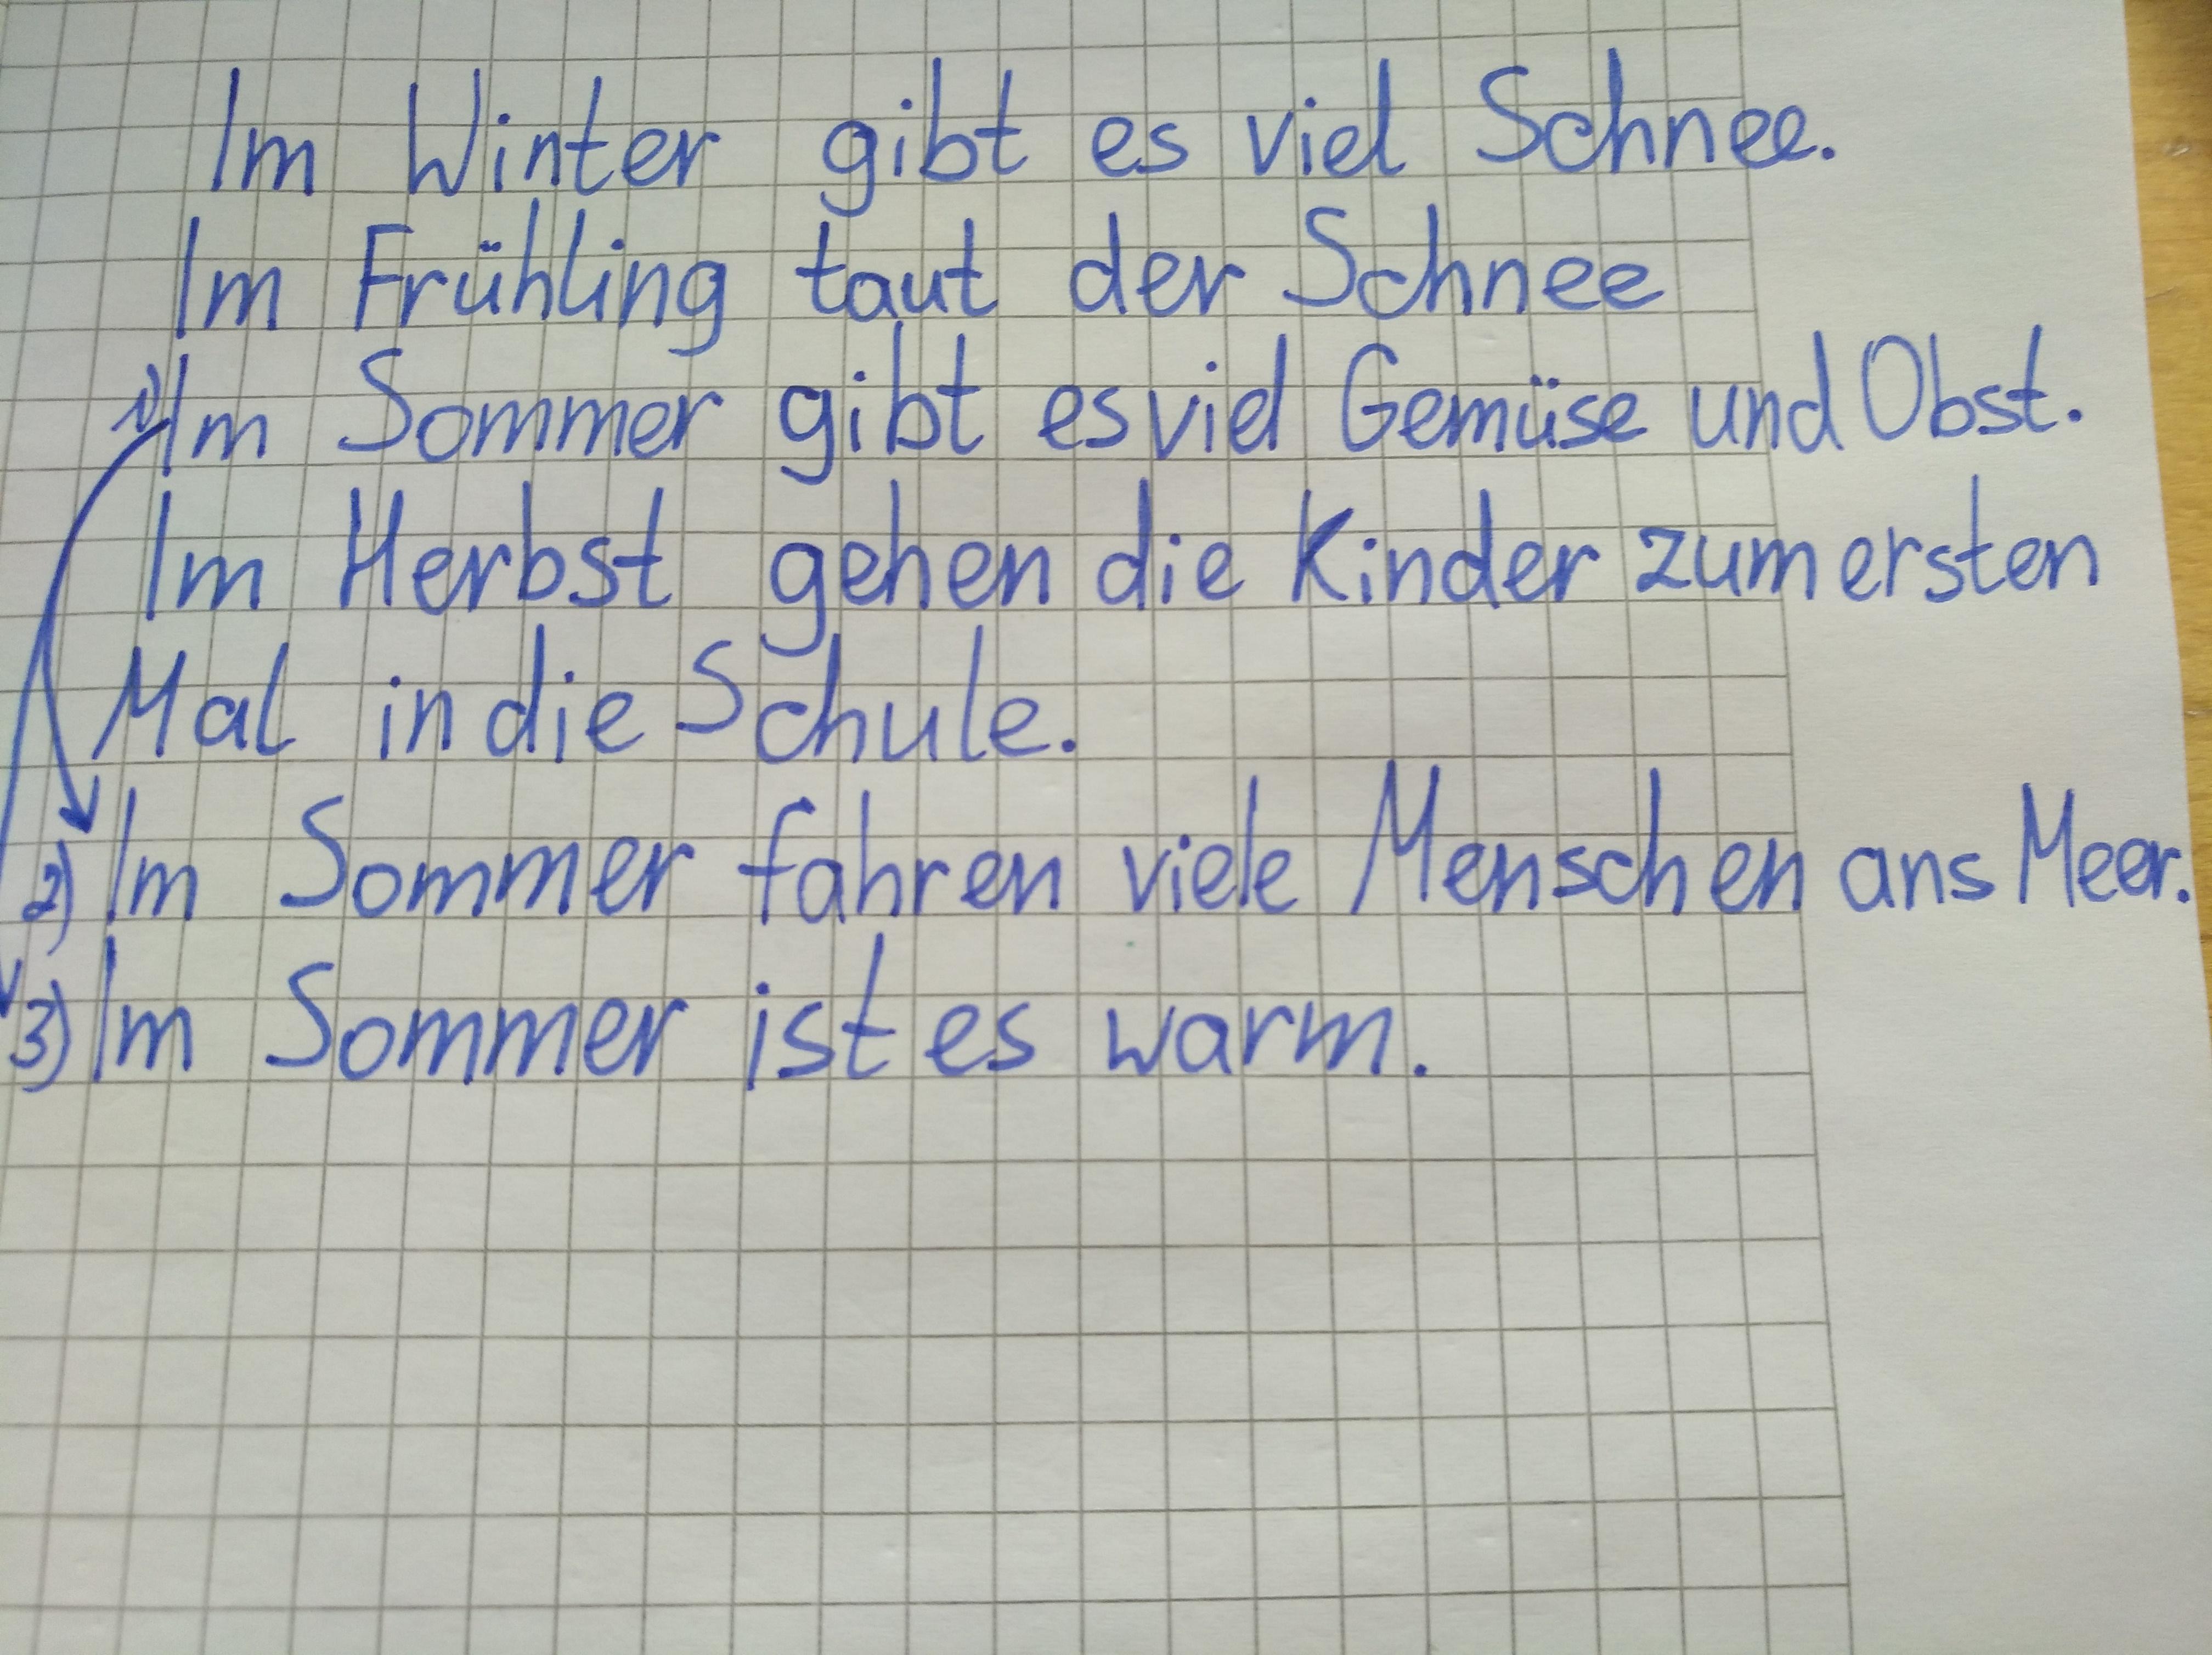 Im Winter gibt es viel Schnee.
Im Frühling taut der Schnee
1) Im Sommer gibt es viel Gemüse und Obst.
Im Herbst gehen die Kinder zum ersten
Mal in die Schule.
2) Im Sommer fahren viele Menschen ans Meer.
3) Im Sommer ist es warm.